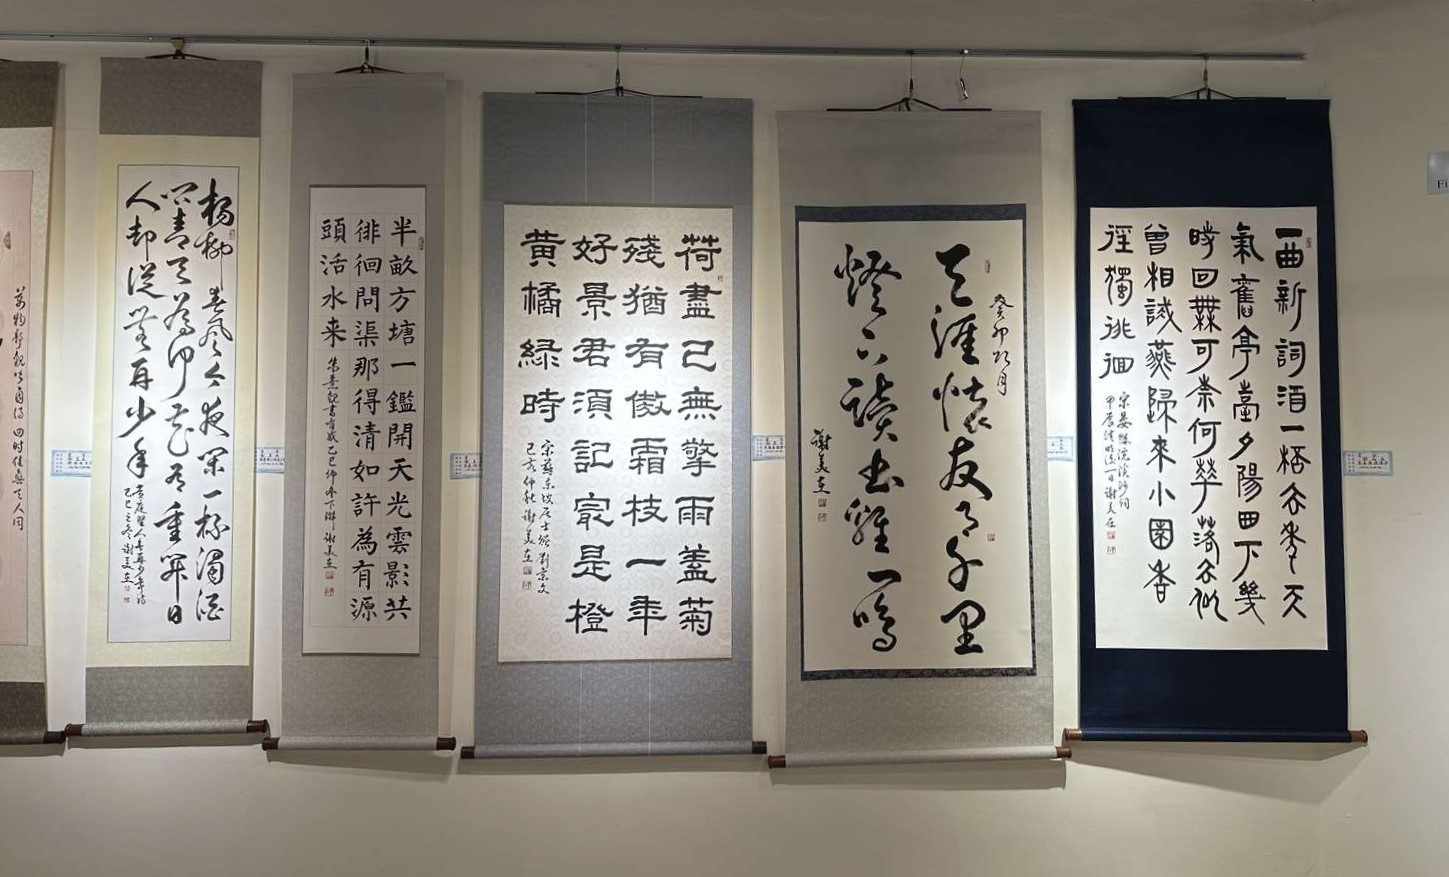 一曲新詞酒一桮去年天
氣舊亭臺夕陽西下幾
時回無可奈何華落去似
曾相識燕歸來小園香
徑獨徘徊
宋晏殊浣溪沙詞
甲辰清明後一日謝美在
癸卯巧月
天涯懷友月千里
燈下讀書雞一鳴
謝美在
荷盡已無擎雨蓋菊
殘猶有傲霜枝一年
好景君須記最是橙
黃橘綠時
宋蘇東坡居士贈劉景文
己亥仲秋謝美在
半畝方塘一鑑開天光雲影共
徘徊問渠那得清如許為有源
頭活水来
朱熹觀書有感乙巳仲冬下澣謝美在
楊柳春風今夜闌一杯濁酒
問青天為何花有重開日
人却從無再少年
乙巳之冬謝美在
萬物靜觀皆自得四時佳興與人同